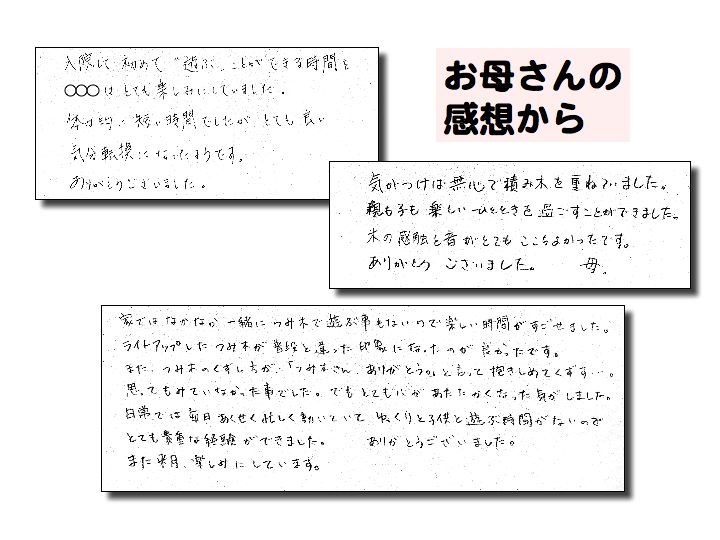 お母さんの
感想から
入院して初めて"遊ぶ"ことができる時間を
○○○はとても楽しみにしていました。
短い時間でしたが、とても良い
気分転換になったようです。
ありがとうございました。
気がつけば無心で積み木を重ねていました。
親も子も楽しいひとときを過ごすことができました。
木の感触と音がとてもここちよかったです。
ありがとう ございました。 母。
家ではなかなか一緒につみ木で遊ぶ事もないので楽しい時間がすごせました。
ライトアップしたつみ木が普段と違った印象になったのが良かったです。
また、つみ木のくずし方が、「つみ木さん、ありがとう。」と言って抱きしめてくずす…。
思ってもみていなかった事でした。でもとても心があたたかくなった気がしました。
日常では毎日あくせく忙しく動いていて ゆっくりと子供と遊ぶ時間がないので
とても貴重な経験ができました。 ありがとうございました。
また来月、楽しみにしています。